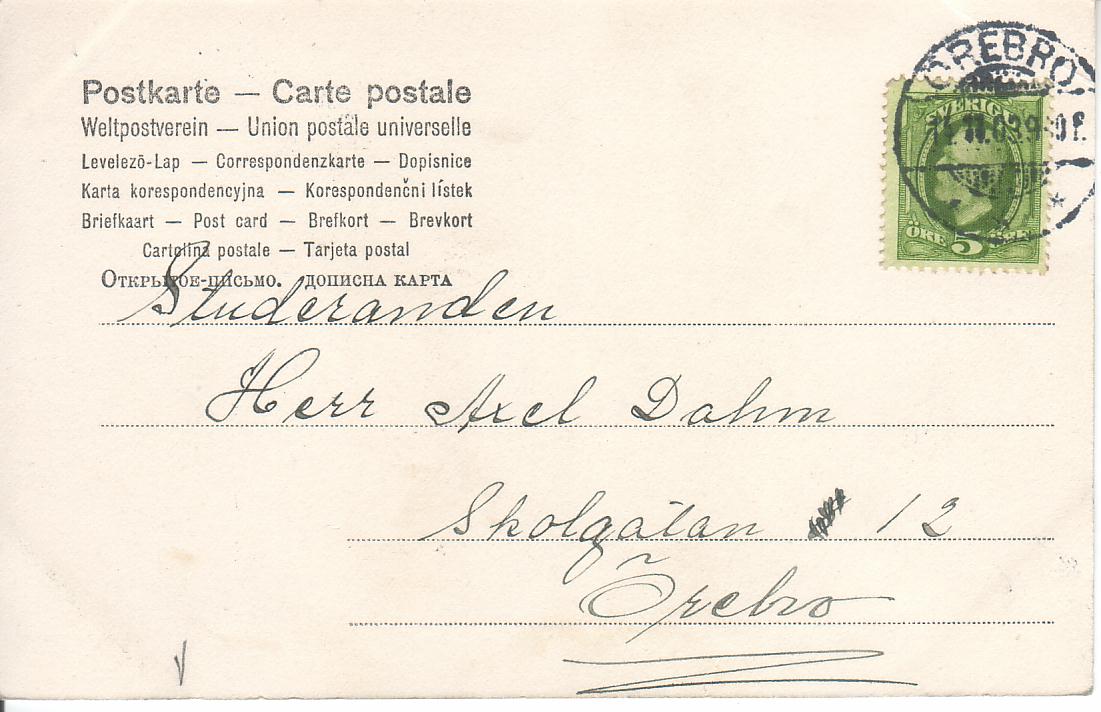 Postkarte — Carte postale
Weltpostverein — Union postale universelle
Levelező-Lap — Correspondenzkarte — Dopisnice
Karta korespondencyjna — Korespondenčni lístek
Briefkaart — Post card — Brefkort — Brevkort
Cartolina postale — Tarjeta postal
Открытое-письмо. дописна карта
ÖREBRO
SVERIGE
11.03
ÖRE 5 ÖRE
Studeranden
Herr Axel Dahm
Skolgatan 12
Örebro